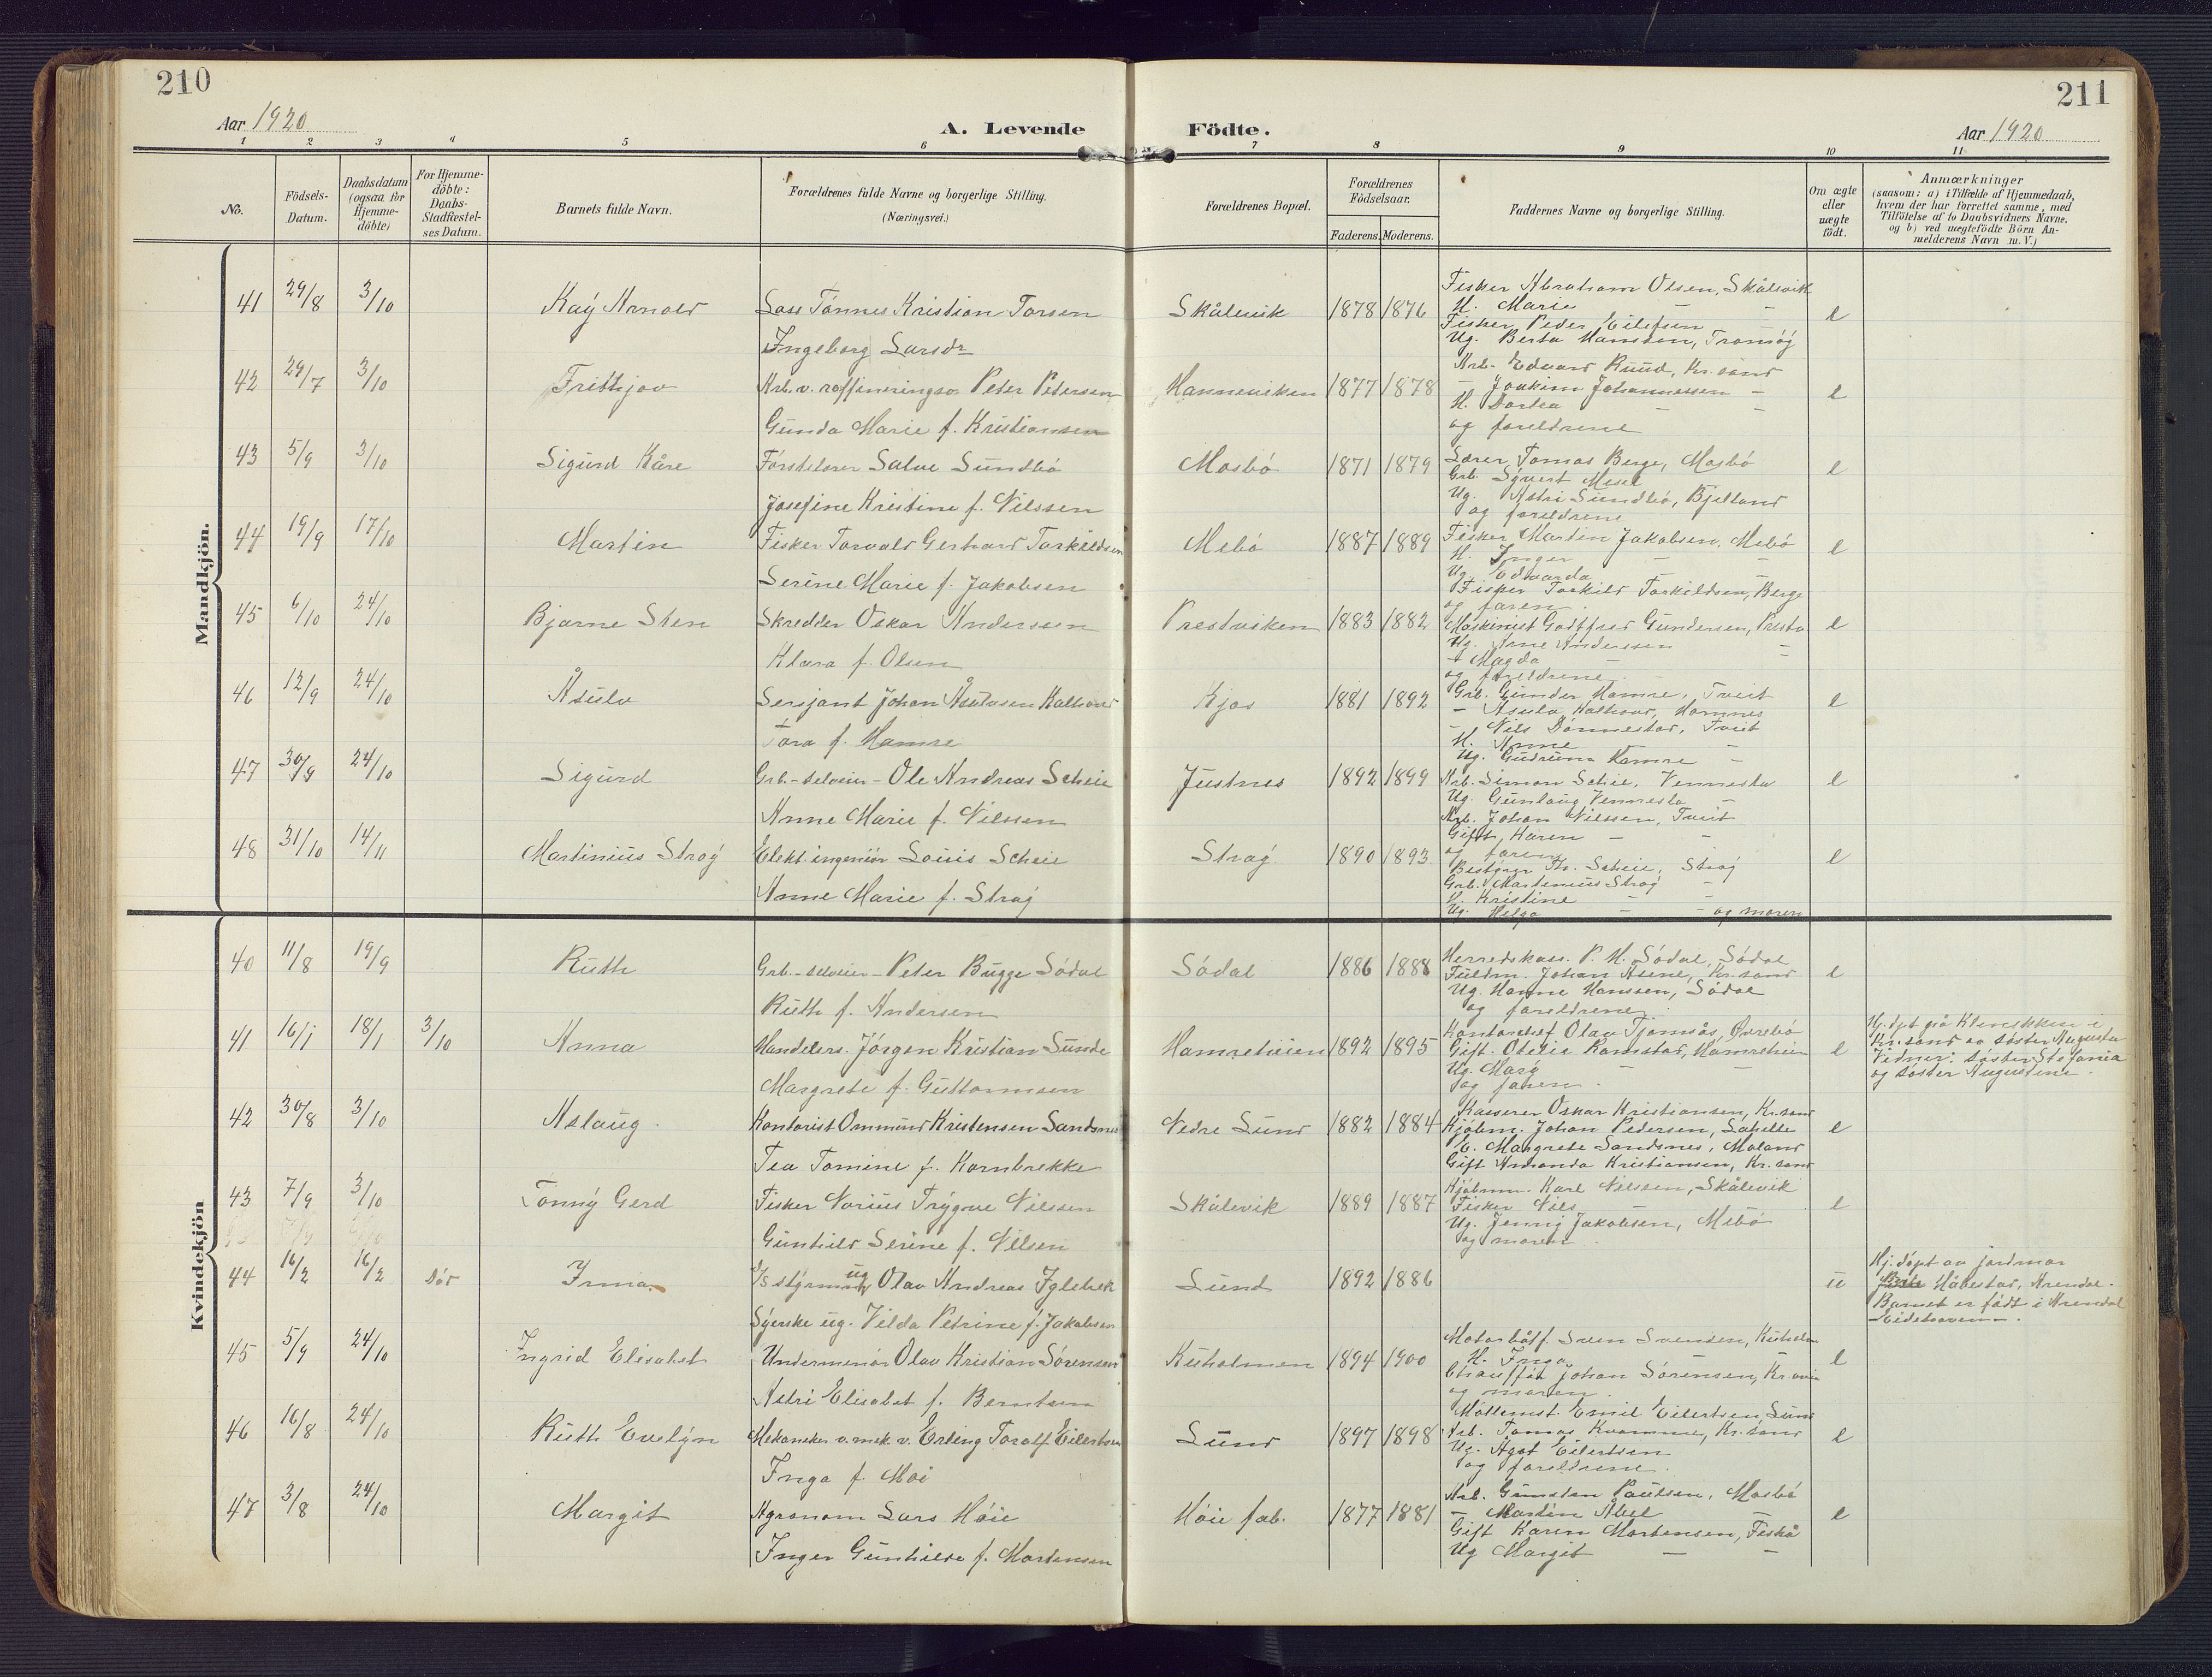 210
211
Aar 1920
A. Levende
Födte.
Aar 1920
1 2 3 4 5 6 7 8 9 10 11
No.
Födsels-
Datum.
Daabsdatum
(ogsaa for
Hjemme-
döbte)
For Hjemme-
döbte:
Daabs-
Stadfæstel-
ses Datum.
Barnets fulde Navn.
Forældrenes fulde Navne og borgerlige Stilling.
(Næringsvei.)
Forældrenes Bopæl.
Forældrenes
Födselsaar.
Faderens. Moderens.
Faddernes Navne og borgerlige Stilling.
Om ægte
eller
uægte
födt.
Anmærkninger
(saasom: a) i Tilfælde af Hjemmedaab,
hvem der har forrettet samme, med
Tilföielse af to Daabsvidners Navne.
og b) ved uægtefödte Börn An-
melderens Navn m. V.)
Mandkjön.
41 29/8 3/10 Kay Arnold
Los Tönnes Kristian Torsen
Ingeborg Larsdr
Skålevik 1878 1876
Fisker Abraham Olsen, Skålevik
H. Marie - -
Fisker Peder Eilefsen
Ug. Berta Hansson, Tromöy
e
42 29/7 3/10 Frithjov
Arb. v. raffineringsv. Peter Petersen
Gunda Marie f. Kristiansen
Hanneviken 1877 1878
Arb. Edvard Ruud, Kr.sand
- Joakim Johannessen -
H. Dortea - -
og foreldrene
e
43 5/9 3/10 Sigurd Kåre
Salve Sundbö
Josefine Kristine f. Nilssen
Mosbö 1871 1879
Lærer Tomas Berge, Mosbö
Grb. Sivert Mesel
Ug. Astri Sundbö, Bjelland
og foreldrene
e
44 19/9 17/10 Martin
Fisker Torvald Gerhard Torkildsen
Serine Marie f. Jakobsen
Mebö 1887 1889
Fisker Martin Jakobsen, Mebö
H. Inger - -
Ug. Edvarda - -
Fisker Torkild Torkildsen, Berge
og faren.
e
45 6/10 24/10 Bjarne Sten
Skredder Oskar Anderssen
Klara f. Olsen
Prestviken 1883 1882
Maskinist Godtfred Gundersen, Prestv.
Ug. Arne Anderssen -
- Magda - -
og foreldrene.
e
46 12/9 24/10 Åsulv
Sersjant Johan Åsulvsen Kaltvand
Tora f. Hamre
Kjos 1881 1892
Grb. Gunder Hamre, Tveit
- Asulv Hamnes
- Nils Dönnestad, Tveit
H. Anne -
Ug. Gudrun Hamre -
e
47 30/9 24/10 Sigurd
Grb.-selveier- Ole Andreas Scheie
Anne Marie f. Nilssen
Justnes 1892 1899
Arb. Simon Scheie, Vennesla
Ug. Gunlaug Vennesla -
Arb. Johan Nilssen, Tveit
Gift, Karen - -
og faren
e
48 31/10 14/11 Martinius Straj
Elekt. ingeniör Louis Scheie
Anne Marie f. Straj
Straj 1890 1893
Bestyrer Th. Scheie, Straj
Grb. Martinius Straj -
H. Kristine - -
Ug. Helga - - og moren
e
Kvindekjön
40 11/8 19/9 Ruth
Grb.-selveier- Peter Bugge Södal
Ruth f. Andersen
Södal 1886 1888
Herredskass. P. H. Södal, Södal
Fuldm. Johan Kr.sand
Ug. Hanne Hanssen, Södal
og foreldrene.
e
41 16/1 18/1 3/10 Anna
Handelsr. Jörgen Kristian Sunde
Margrete f. Guttormsen
Hamreheien 1892 1895
Kontorchef Olav Tjomsås, Övrebö
Gift. Otelie Ramstad, Hamreheien
Ug. Mary - -
og faren.
e
Hj. dpt på Klinikken i
Kr.sand av söster Augusta
Vidner: söster Stefania
og söster Augustine.
42 30/8 3/10 Aslaug
Kontorist Ommund Kristensen Sandsnes
Tea Tomine f. Kornbrekke
Nedre Lund 1882 1884
Kasserer Oskar Kristiansen, Kr.sand
Kjöbm. Johan Pedersen,
E. Margrete Sandsnes, Moland
Gift Amanda Kristiansen, Kr.sand
e
43 7/9 3/10 Tönny Gerd
Fisker Norius Trygve Nilssen
Gunhild Serine f. Nilsen
Skålevik 1889 1887
Kjöbm. Karl Nilssen, Skålevik
Fisker Nils - -
Ug. Jenny Jakobsen, Mebö
og moren.
e
44 16/2 16/2 Död Irma
ug Olav Andreas Iglebek
Syerske ug. Vilda Petrine f. Jakobsen
Lund 1892 1886
u
Hj. döpt av jordmor
Håbestad, Arendal.
Barnet er född i Arendal
45 5/9 24/10 Ingrid Elisabet
Underminör Olav Kristian Sörensen
Astri Elisabet f. Berntsen
Kuholmen 1894 1900
Motorbåtf. Sven Svensen, Kuholm
H. Inga
Chaufför Johan Sörensen, Kr.sand
og moren.
e
46 16/8 24/10 Ruth Evelyn
Mekaniker v. mek. v. Erling Toralf Eilertsen
Inga f. Moi
Lund 1897 1898
Emil Eilertsen, Lund
Arb. Tomas Kvamme, Kr.sand
Ug. Ågot Eilertsen
og foreldrene.
e
47 3/8 24/10 Margit
Agronom Lars Höie
Inger Gunhilde f. Mortensen
Höie fab. 1877 1881
Arb. Gunstein Paulsen, Mosbö
- Martin Abel -
Gift Karen Mortensen, Fiskå
Ug Margit - -
e